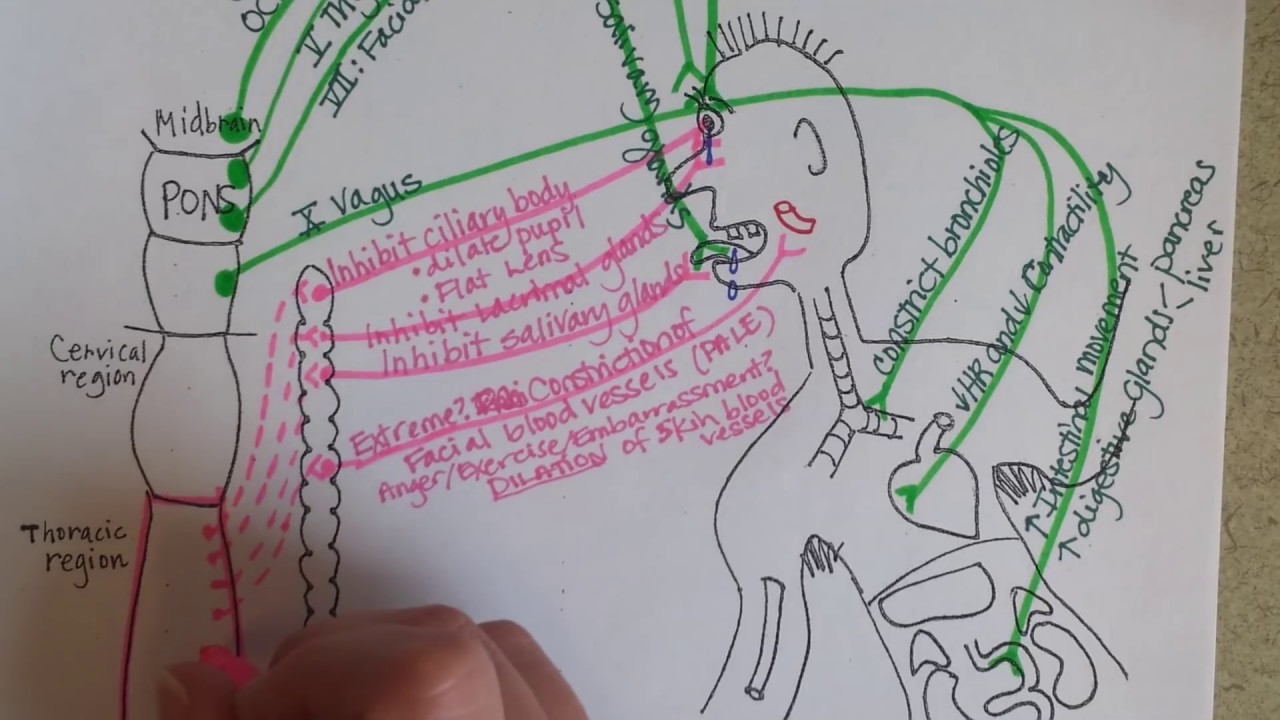 OC
V Th
VII: Facia
salivary glands
Midbrain
PONS
X Vagus
Cervical
region
Thoracic
region
Inhibit ciliary body
• dilate pupil
• Flat Lens
Inhibit Lacrimal glands
Inhibit salivary glands
Extreme? Constriction of
Facial blood vessels (PALE)
Anger/Exercise/Embarrassment?
DILATION of skin blood
vessels
Constrict bronchioles
↓HR and↓ Contractility
↑Intestinal movement
↑digestive glands - pancreas
liver